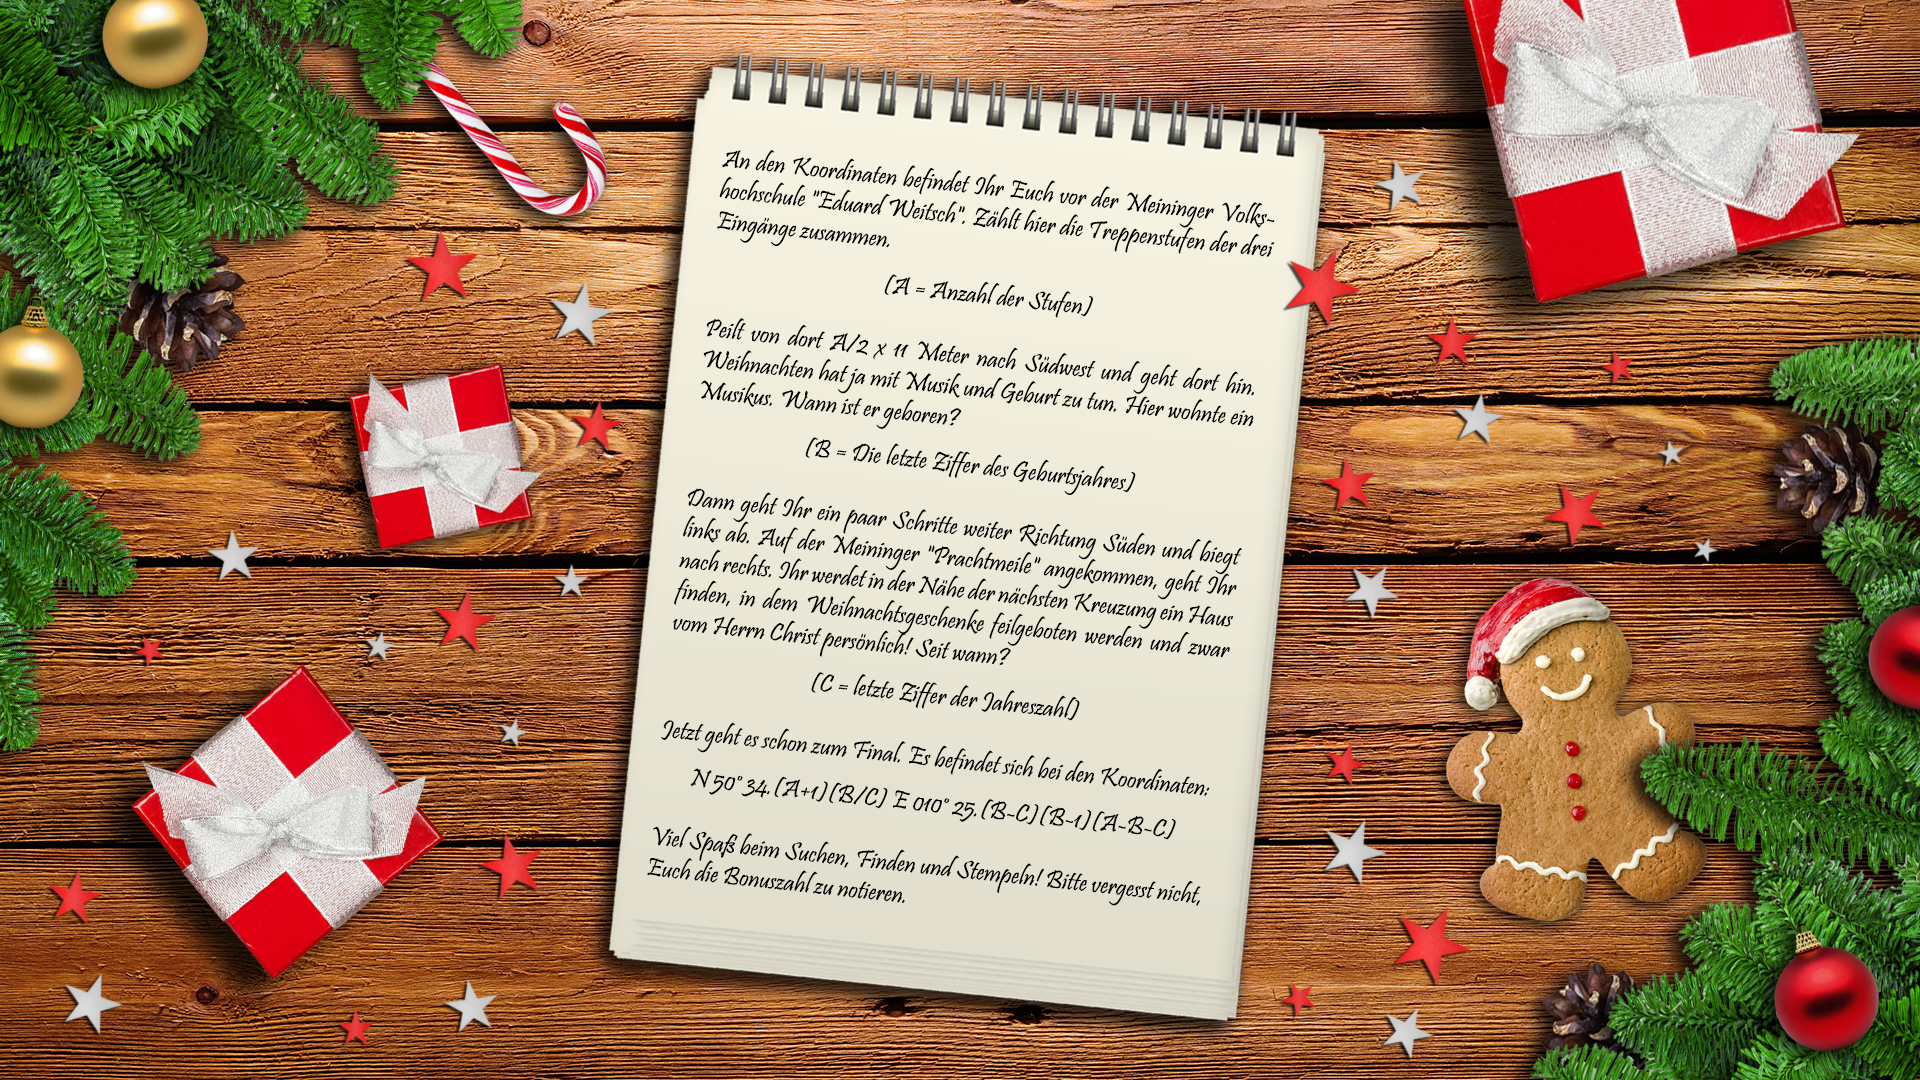 An den Koordinaten befindet Ihr Euch vor der Meininger Volks-
hochschule "Eduard Weitsch". Zählt hier die Treppenstufen der drei
Eingänge zusammen.
(A = Anzahl der Stufen)
Peilt von dort A/2 x 11 Meter nach Südwest und geht dort hin.
Weihnachten hat ja mit Musik und Geburt zu tun. Hier wohnte ein
Musikus. Wann ist er geboren?
(B = Die letzte Ziffer des Geburtsjahres)
Dann geht Ihr ein paar Schritte weiter Richtung Süden und biegt
links ab. Auf der Meininger "Prachtmeile" angekommen, geht Ihr
nach rechts. Ihr werdet in der Nähe der nächsten Kreuzung ein Haus
finden, in dem Weihnachtsgeschenke feilgeboten werden und zwar
vom Herrn Christ persönlich! Seit wann?
(C = letzte Ziffer der Jahreszahl)
Jetzt geht es schon zum Final. Es befindet sich bei den Koordinaten:
N 50° 34.(A+1)(B/C) E 010° 25.(B-C)(B-1)(A-B-C)
Viel Spaß beim Suchen, Finden und Stempeln! Bitte vergesst nicht,
Euch die Bonuszahl zu notieren.